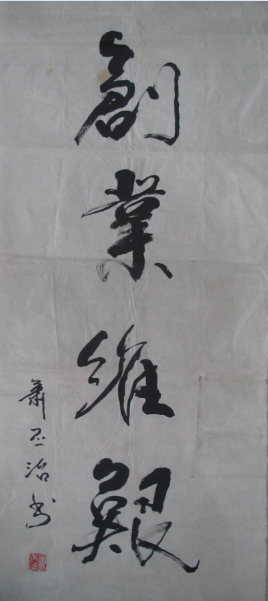 創業維艱
蕭丕治書